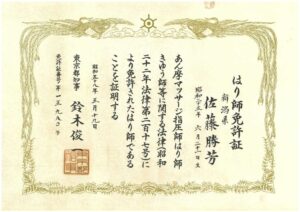 はり師免許証
新潟県
佐藤勝芳
昭和二十五年 六月二十一日生
あん摩マツサージ指圧師はり師
きゆう師等に関する法律(昭和
二十二年法律第二百十七号)に
より免許されたはり師である
ことを証明する
昭和五十八年 五月十九日
東京都知事 鈴木俊一